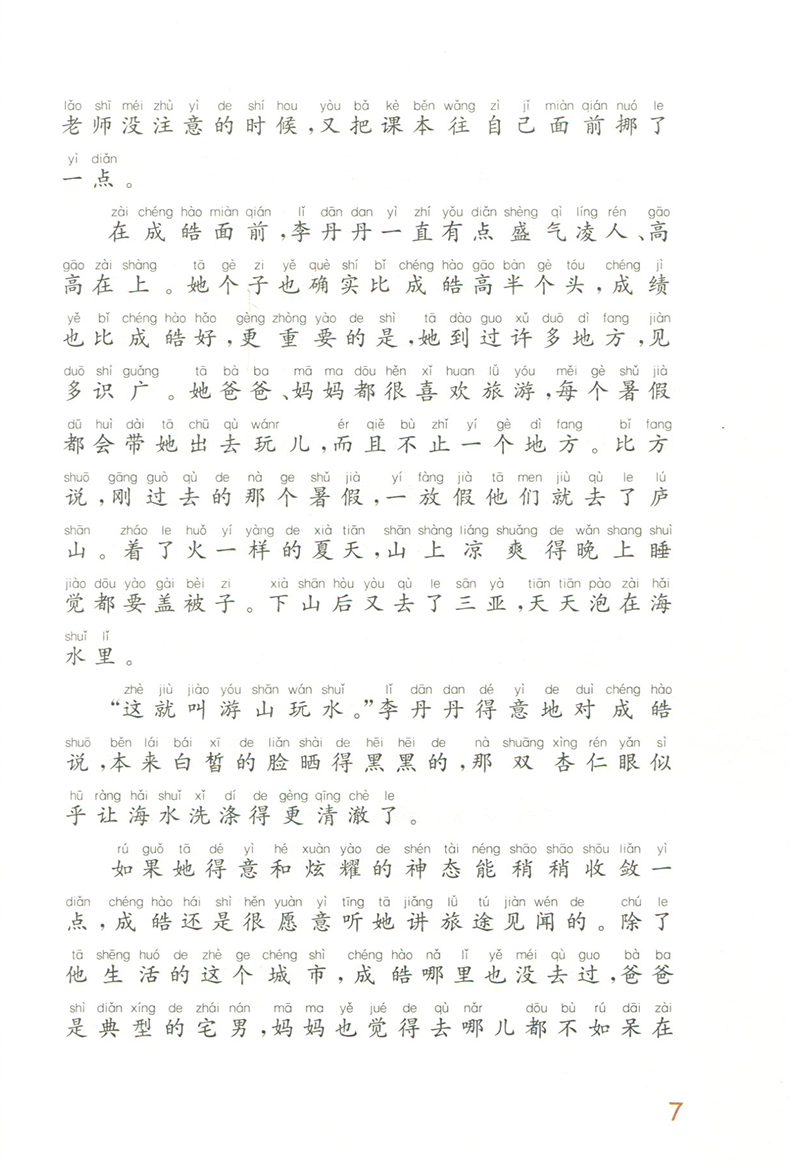 lǎo shī méi zhù yì de shí hou yòu bǎ kè běn wǎng zì jǐ miàn qián nuó le
老师没注意的时候，又把课本往自己面前挪了
yì diǎn
一点。
zài chéng hào miàn qián lǐ dān dan yì zhí yǒu diǎn shèng qì líng rén gāo
在成皓面前，李丹丹一直有点盛气凌人、高
gāo zài shàng tā gè zi yě què shí bǐ chéng hào gāo bàn gè tóu chéng jì
高在上。她个子也确实比成皓高半个头，成绩
yě bǐ chéng hào hǎo gèng zhòng yào de shì tā dào guo xǔ duō dì fang jiàn
也比成皓好，更重要的是，她到过许多地方，见
duō shí guǎng tā bà ba mā ma dōu hěn xǐ huan lǚ yóu měi gè shǔ jià
多识广。她爸爸、妈妈都很喜欢旅游，每个暑假
dū huì dài tā chū qù wánr ér qiě bù zhǐ yí gè dì fang bǐ fang
都会带她出去玩儿，而且不止一个地方。比方
shuō gāng guò qù de nà ge shǔ jià yí fàng jià tā men jiù qù le lú
说，刚过去的那个暑假，一放假他们就去了庐
shān zháo le huǒ yí yàng de xià tiān shān shàng liáng shuǎng de wǎn shang shuì
山。着了火一样的夏天，山上凉爽得晚上睡
jiào dōu yào gài bèi zi xià shān hòu yòu qù le sān yà tiān tiān pào zài hǎi
觉都要盖被子。下山后又去了三亚，天天泡在海
shuǐ lǐ
水里。
zhè jiù jiào yóu shān wán shuǐ lǐ dān dan dé yì de duì chéng hào
“这就叫游山玩水。”李丹丹得意地对成皓
shuō běn lái bái xī de liǎn shài de hēi hēi de nà shuāng xìng rén yǎn sì
说，本来白皙的脸晒得黑黑的，那双杏仁眼似
hū ràng hǎi shuǐ xǐ dí de gèng qīng chè le
乎让海水洗涤得更清澈了。
rú guǒ tā dé yì hé xuàn yào de shén tài néng shāo shāo shōu liǎn yì
如果她得意和炫耀的神态能稍稍收敛一
diǎn chéng hào hái shì hěn yuàn yì tīng tā jiǎng lǚ tú jiàn wén de chú le
点，成皓还是很愿意听她讲旅途见闻的。除了
tā shēng huó de zhè ge chéng shì chéng hào nǎ lǐ yě méi qù guo bà ba
他生活的这个城市，成皓哪里也没去过，爸爸
shì diǎn xíng de zhái nán mā ma yě jué de qù nǎr dōu bù rú dāi zài
是典型的宅男，妈妈也觉得去哪儿都不如呆在
7